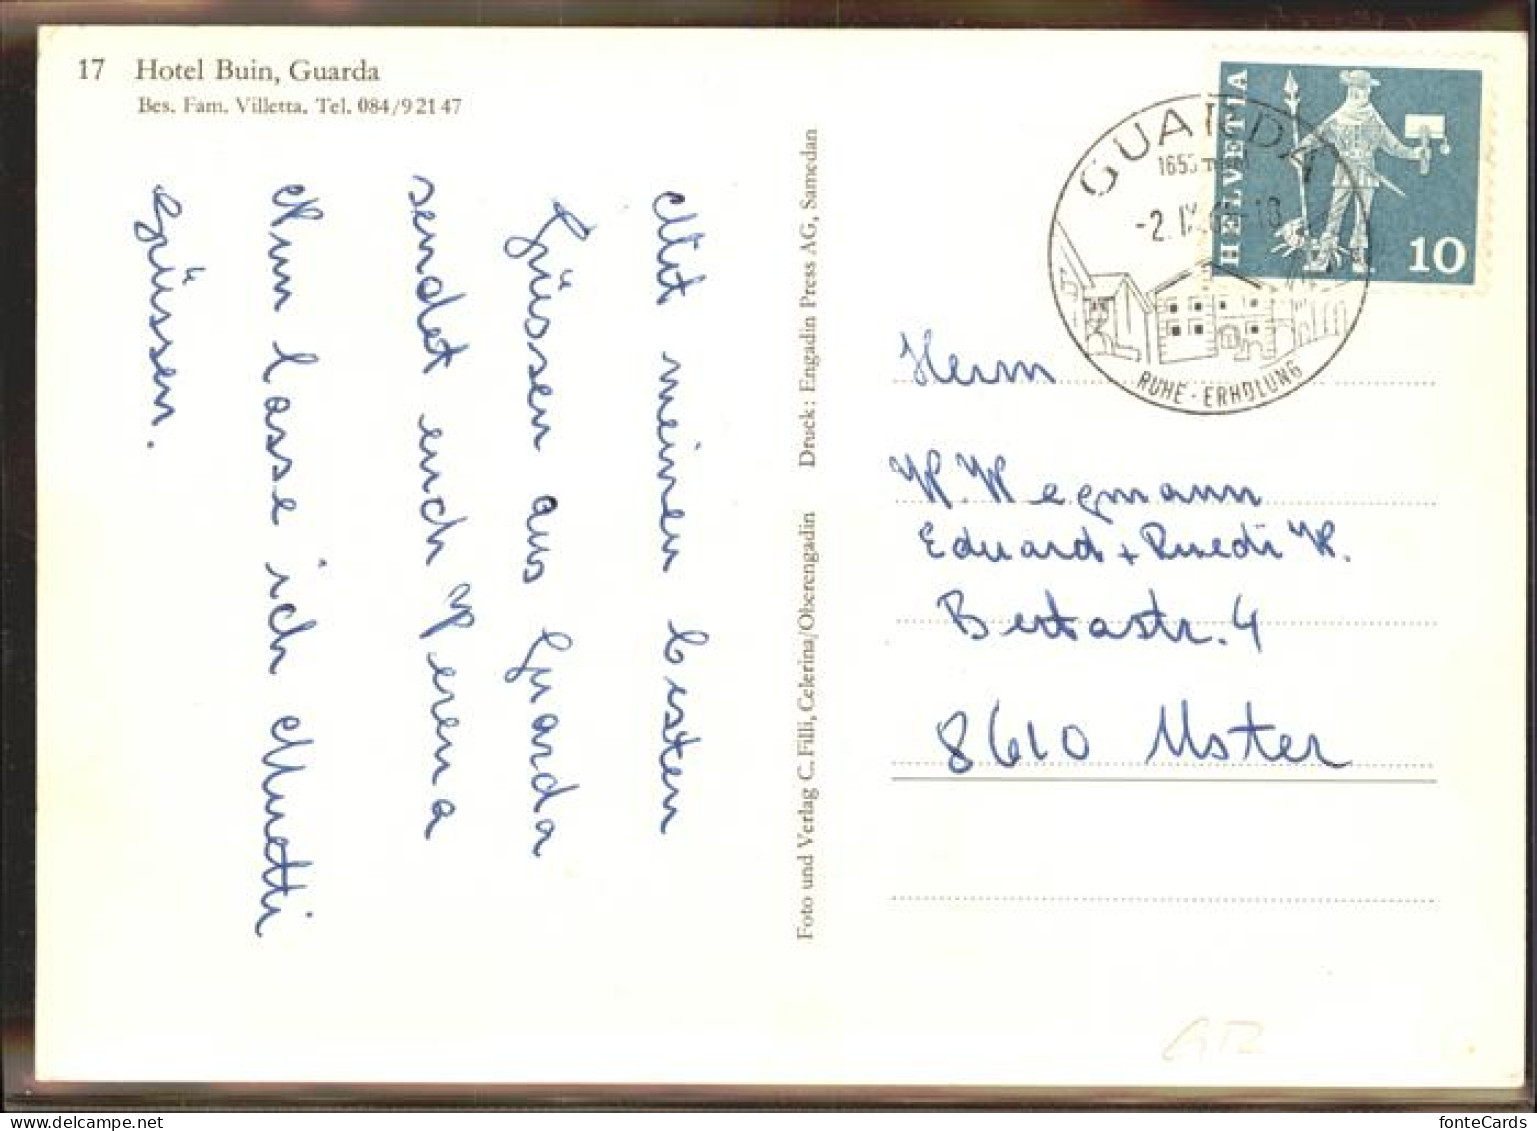 17 Hotel Buin, Guarda
Bes. Fam. Villetta. Tel. 084/9 21 47
Mit meinen besten
Grüssen aus Guarda
sendet euch Verena
Nun lasse ich Muetti
Grüssen.
Foto und Verlag C. Filli, Celerina/Oberengadin Druck: Engadin Press AG, Samedan
GUARDA
1653 m
-2. IX.
RUHE - ERHOLUNG
HELVETIA
10
Herrn
W. Wegmann
Eduard + Ruedi W.
Bertastr. 4
8610 Uster
fonteCards